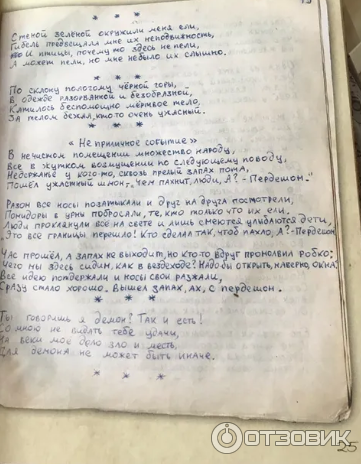 * * *
Стеной зелёной окружили меня ели,
Гибель предвещала мне их неподвижность,
И птицы, почему то здесь не пели,
А может пели, но мне небыло их слышно.
* * *
По склону пологому чёрной горы,
В одежде разорванной и безобразной,
Катилось беспомощно мёртвое тело,
За телом бежал, кто то очень ужасный.
* * *
« Не приличное событие »
В нечистом помещении множество народу,
Все в жутком возмущении по следующему поводу,
Недержанье у кого-то, сквозь прелый запах пота,
Пошёл ужастный шмон. "Чем пахнит, люди, А? - Пердешом."
Разом все носы позатыкали и друг на друга посмотрели,
Помидоры в урны побросали, те, кто только что их ели.
Люди проклинали всё на свете и лишь смеются улюлюкают дети,
"Это все границы перешло! Кто сделал так, чтоб пахло, А? - Пердешом
Час прошёл, а запах не выходит, но кто-то вдруг промолвил робко:
"Чего мы здесь сидим, как в вездеходе! Надо бы открыть, наверно, окна."
Все идею поддержали и носы свои разжали,
Сразу стало хорошо. Вышел запах, ах, с пердешом.
* * *
Ты говоришь я демон? Так и есть!
Со мною не видать тебе удачи,
На веки моё дело зло и месть,
Для демона не может быть иначе.
* * *
25
ОТЗОВИК